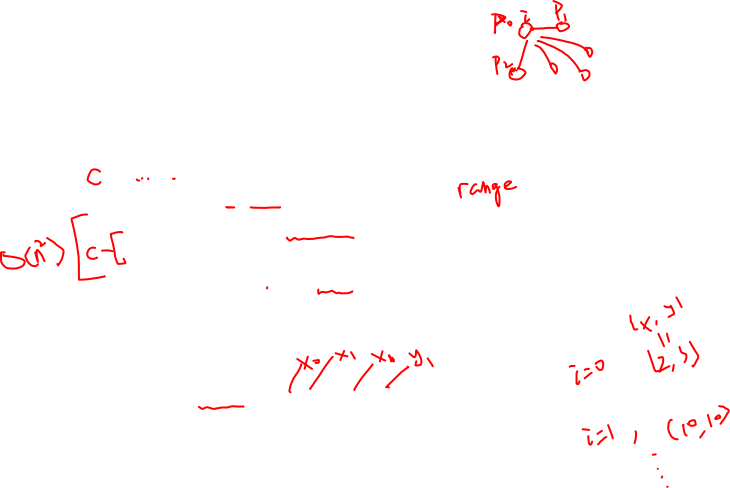 P0 i P1
P2
C ... .
range
O(n²) [ C-[
(x, y)
x0 x1 x0 y1
i=0 (2,3)
i=1, (10,10)